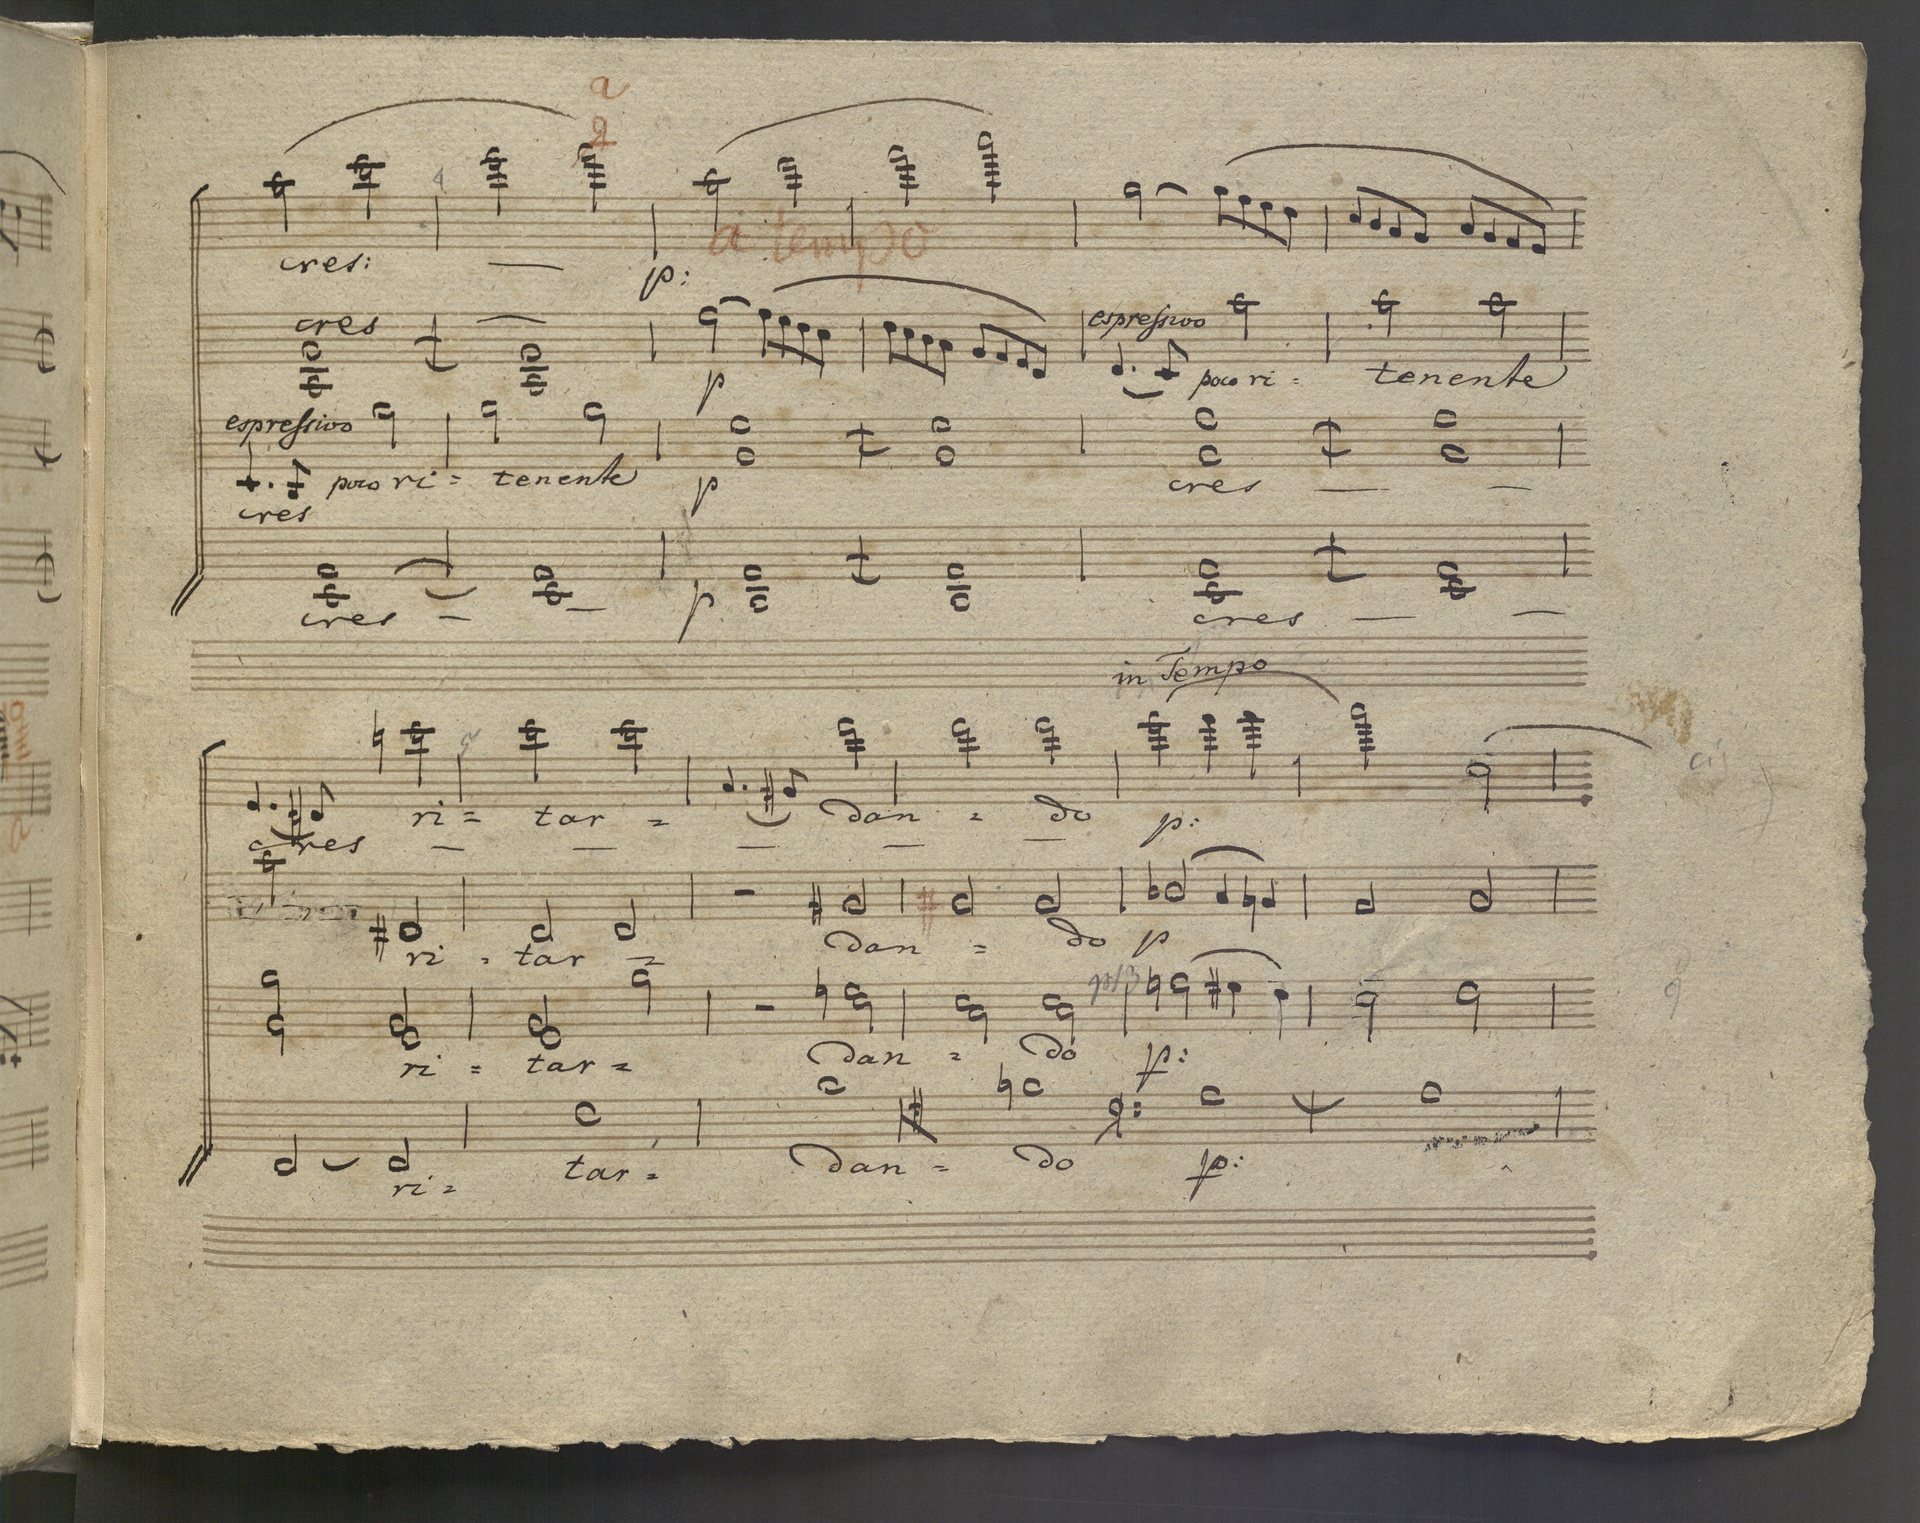 a
a tempo
cres: —
p:
cres —
p
espressivo
poco ri = tenente
espressivo
poco ri = tenente
cres
p
cres — —
cres — —
p
cres — —
in Tempo
ri = tar = dan = do p:
cres — — — — —
cis
ri = tar = dan = do p
ri = tar = dan = do p:
ri = tar = dan = do p: